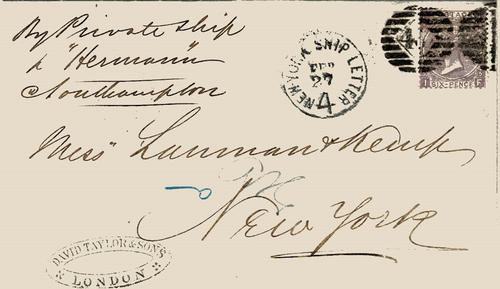 By Private Ship
p "Hermann"
Southampton
NEW-YORK SHIP LETTER
FEB
27
4
4
SIX-PENCE
Messrs Lanman & Kemp
New York
DAVID TAYLOR & SONS
LONDON